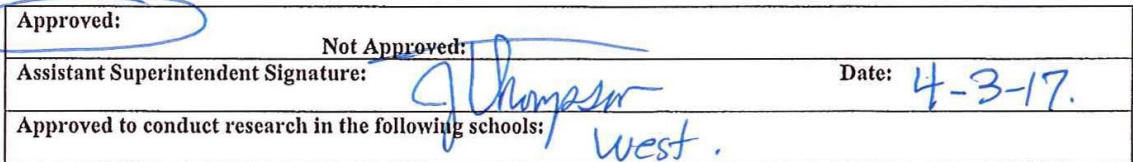 Approved:
Not Approved:
Assistant Superintendent Signature: J Thompson Date: 4-3-17.
Approved to conduct research in the following schools: West.